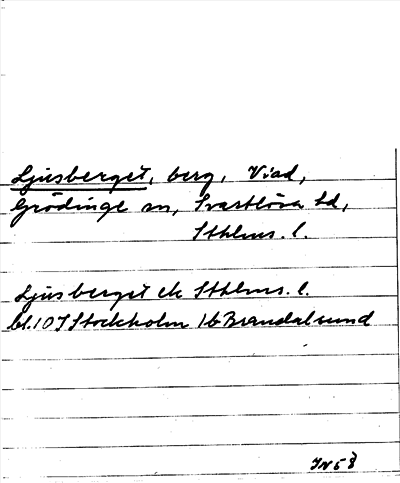 Ljusberget, berg, Viad,
Grödinge sn, Svartlösa hd,
Sthlms. l.
Ljusberget ek Sthlms. l.
bl. 10I Stockholm 1b Brandalsund
IN58